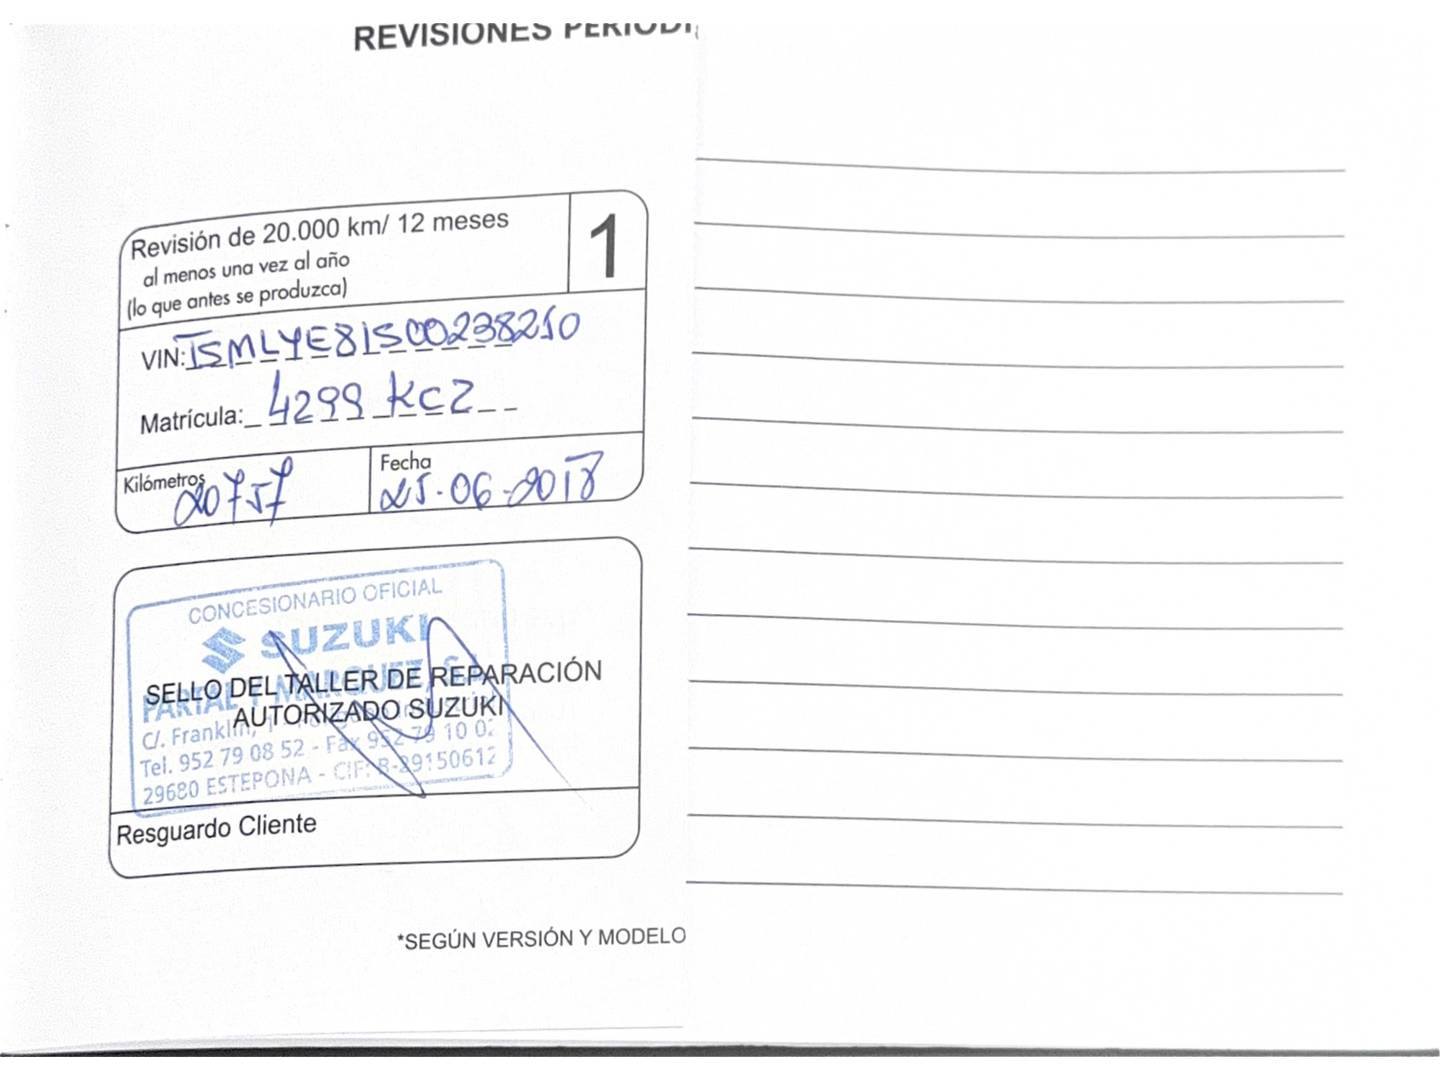 REVISIONES PERIODI
Revisión de 20.000 km/ 12 meses
al menos una vez al año
(lo que antes se produzca)
1
VIN: TSMLYE81S00238210
Matrícula: 4299 KCZ
Kilómetros
20757
Fecha
25-06-2018
CONCESIONARIO OFICIAL
SUZUKI
SELLO DEL TALLER DE REPARACIÓN
AUTORIZADO SUZUKI
C/. Franklin, 1
Tel. 952 79 08 52 - Fax 952 79 10 02
29680 ESTEPONA - CIF: B-29150612
Resguardo Cliente
*SEGÚN VERSIÓN Y MODELO